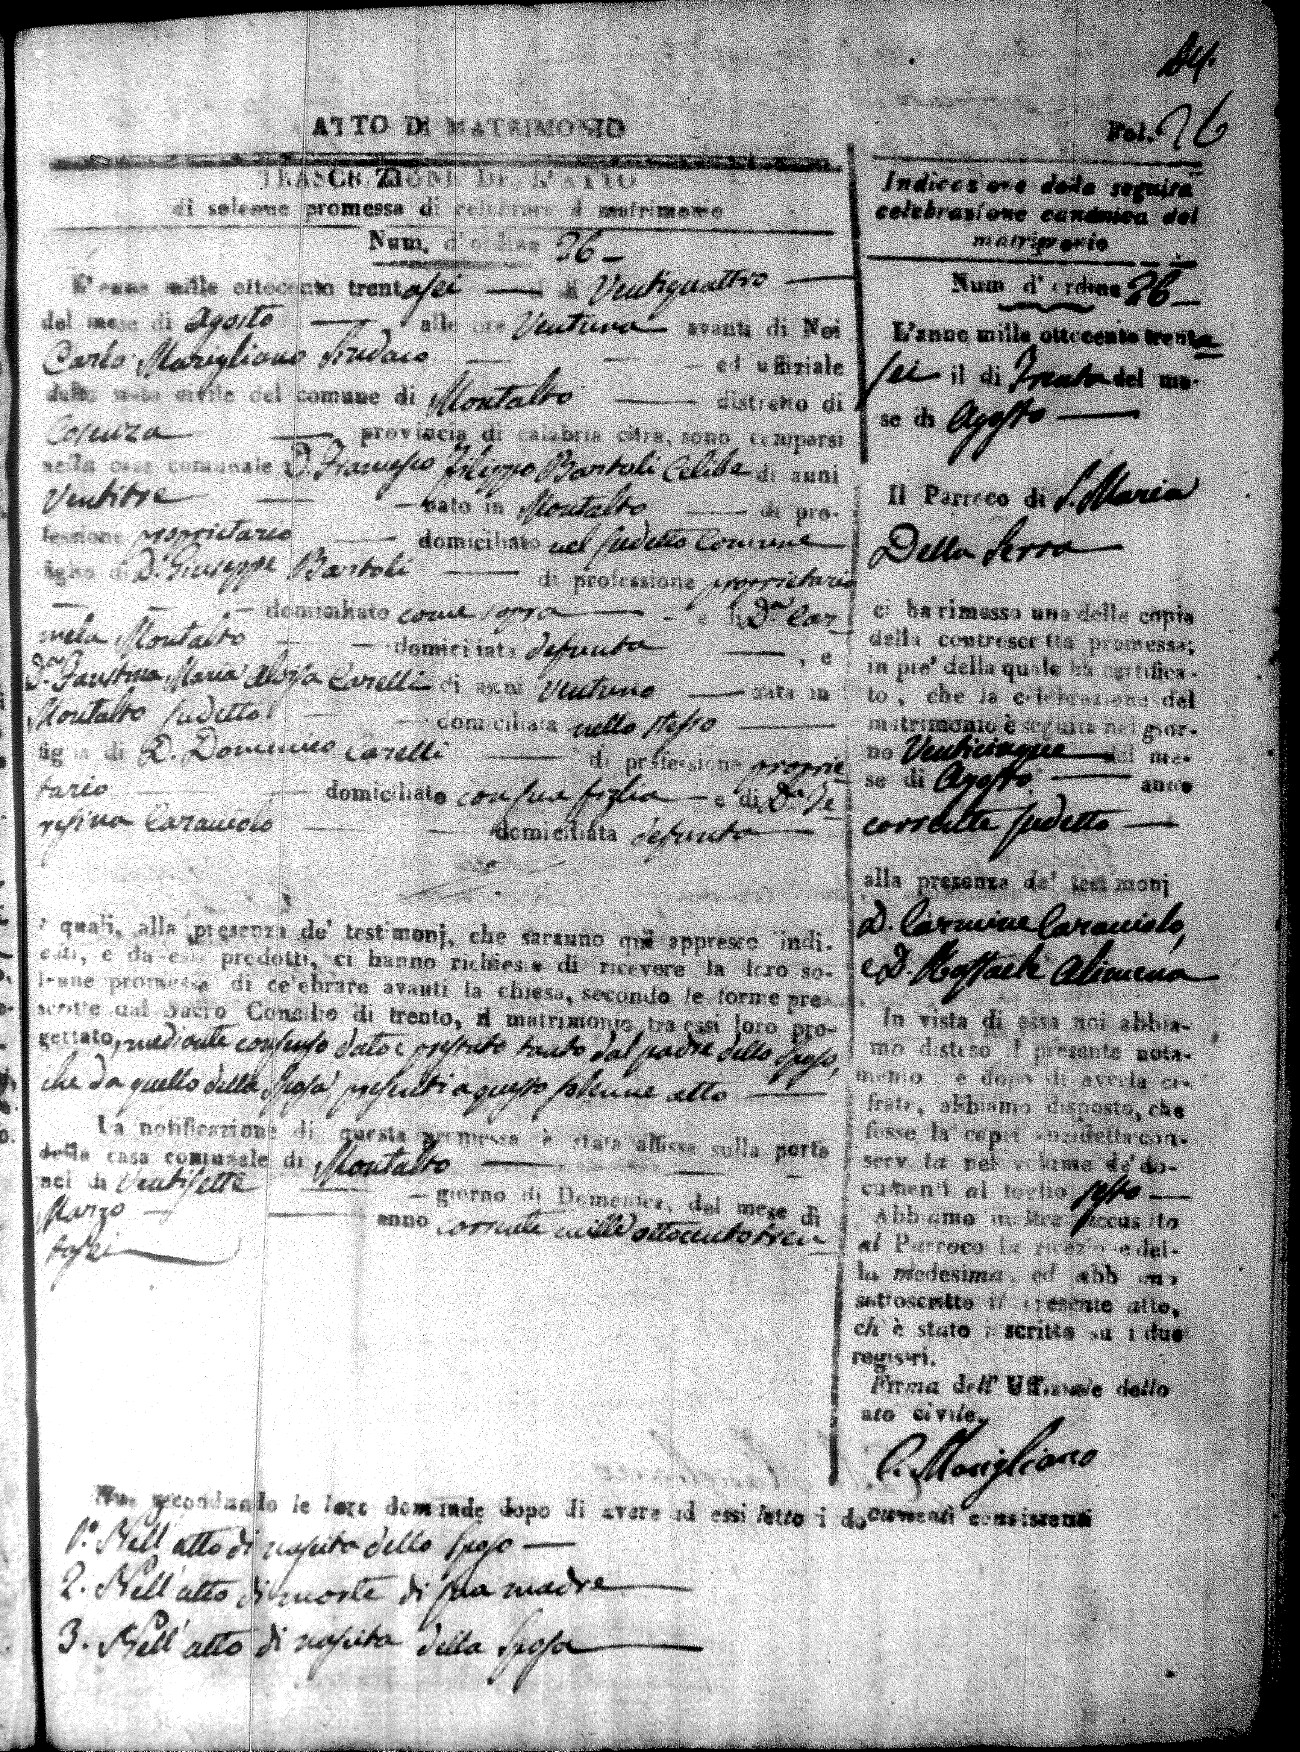 24.
Fol. 26
ATTO DI MATRIMONIO
TRASCRIZIONE DELL'ATTO
di solenne promessa di celebrare il matrimonio
Num. d'ordine 26
L'anno mille ottocento trentasei il dì Ventiquattro
del mese di Agosto alle ore Ventuna avanti di Noi
Carlo Marigliano Sindaco ed uffiziale
dello stato civile del comune di Montalto distretto di
Cosenza provincia di calabria citra, sono comparsi
nella casa comunale D. Francesco Filippo Bartoli Celibe di anni
Ventitre nato in Montalto di pro-
fessione proprietario domiciliato nel sudetto Comune
figlio di D. Giuseppe Bartoli di professione proprietario
domiciliato come sopra e di D.a Car
mela Montalto domiciliata defunta , e
D.a Faustina Maria Aloisa Carelli di anni Ventuno nata in
Montalto sudetto domiciliata nello stesso
figlia di D. Domenico Carelli di professione proprie
tario domiciliato con sua figlia e di D.a Te
resina Caracciolo domiciliata defunta
i quali, alla presenza de' testimonj, che saranno quì appresso indi-
cati, e da essi prodotti, ci hanno richiesto di ricevere la loro so-
lenne promessa di celebrare avanti la chiesa, secondo le forme pre-
scritte dal Sacro Concilio di trento, il matrimonio tra essi loro pro-
gettato, mediante consenso dato e prestato tanto dal padre dello sposo,
che da quello della Sposa, presenti a questo solenne atto
La notificazione di questa promessa è stata affissa sulla porta
della casa comunale di Montalto
nel dì Ventisette giorno di Domenica, del mese di
Marzo anno corrente mille ottocento tren
tasei
Noi secondando le loro domande dopo di avere ad essi letto i documenti consistenti
1.º Nell'atto di nascita dello Sposo
2. Nell'atto di morte di sua madre
3. Nell'atto di nascita della Sposa
Indicazione della seguita
celebrazione canonica del
matrimonio
Num. d'ordine 26
L'anno mille ottocento trenta
sei il dì Trenta del me-
se di Agosto
Il Parroco di S. Maria
Della Serra
ci ha rimesso una delle copie
della controscritta promessa,
in piè della quale ha certifica-
to, che la celebrazione del
matrimonio è seguita nel gior-
no Venticinque del me-
se di Agosto anno
corrente sudetto
alla presenza de' testimonj
D. Carmine Caracciolo,
e D. Raffaele Alimena
In vista di essa noi abbia-
mo disteso il presente nota-
mento, e dopo di averla ci-
frata, abbiamo disposto, che
fosse la copia suddetta con-
servata nel volume de' do-
cumenti al foglio sesto
Abbiamo inoltre accusato
al Parroco la ricezione del-
la medesima, ed abbiamo
sottoscritto il presente atto,
ch'è stato iscritto su i due
registri.
Firma dell'Uffiziale dello
stato civile.
C. Marigliano